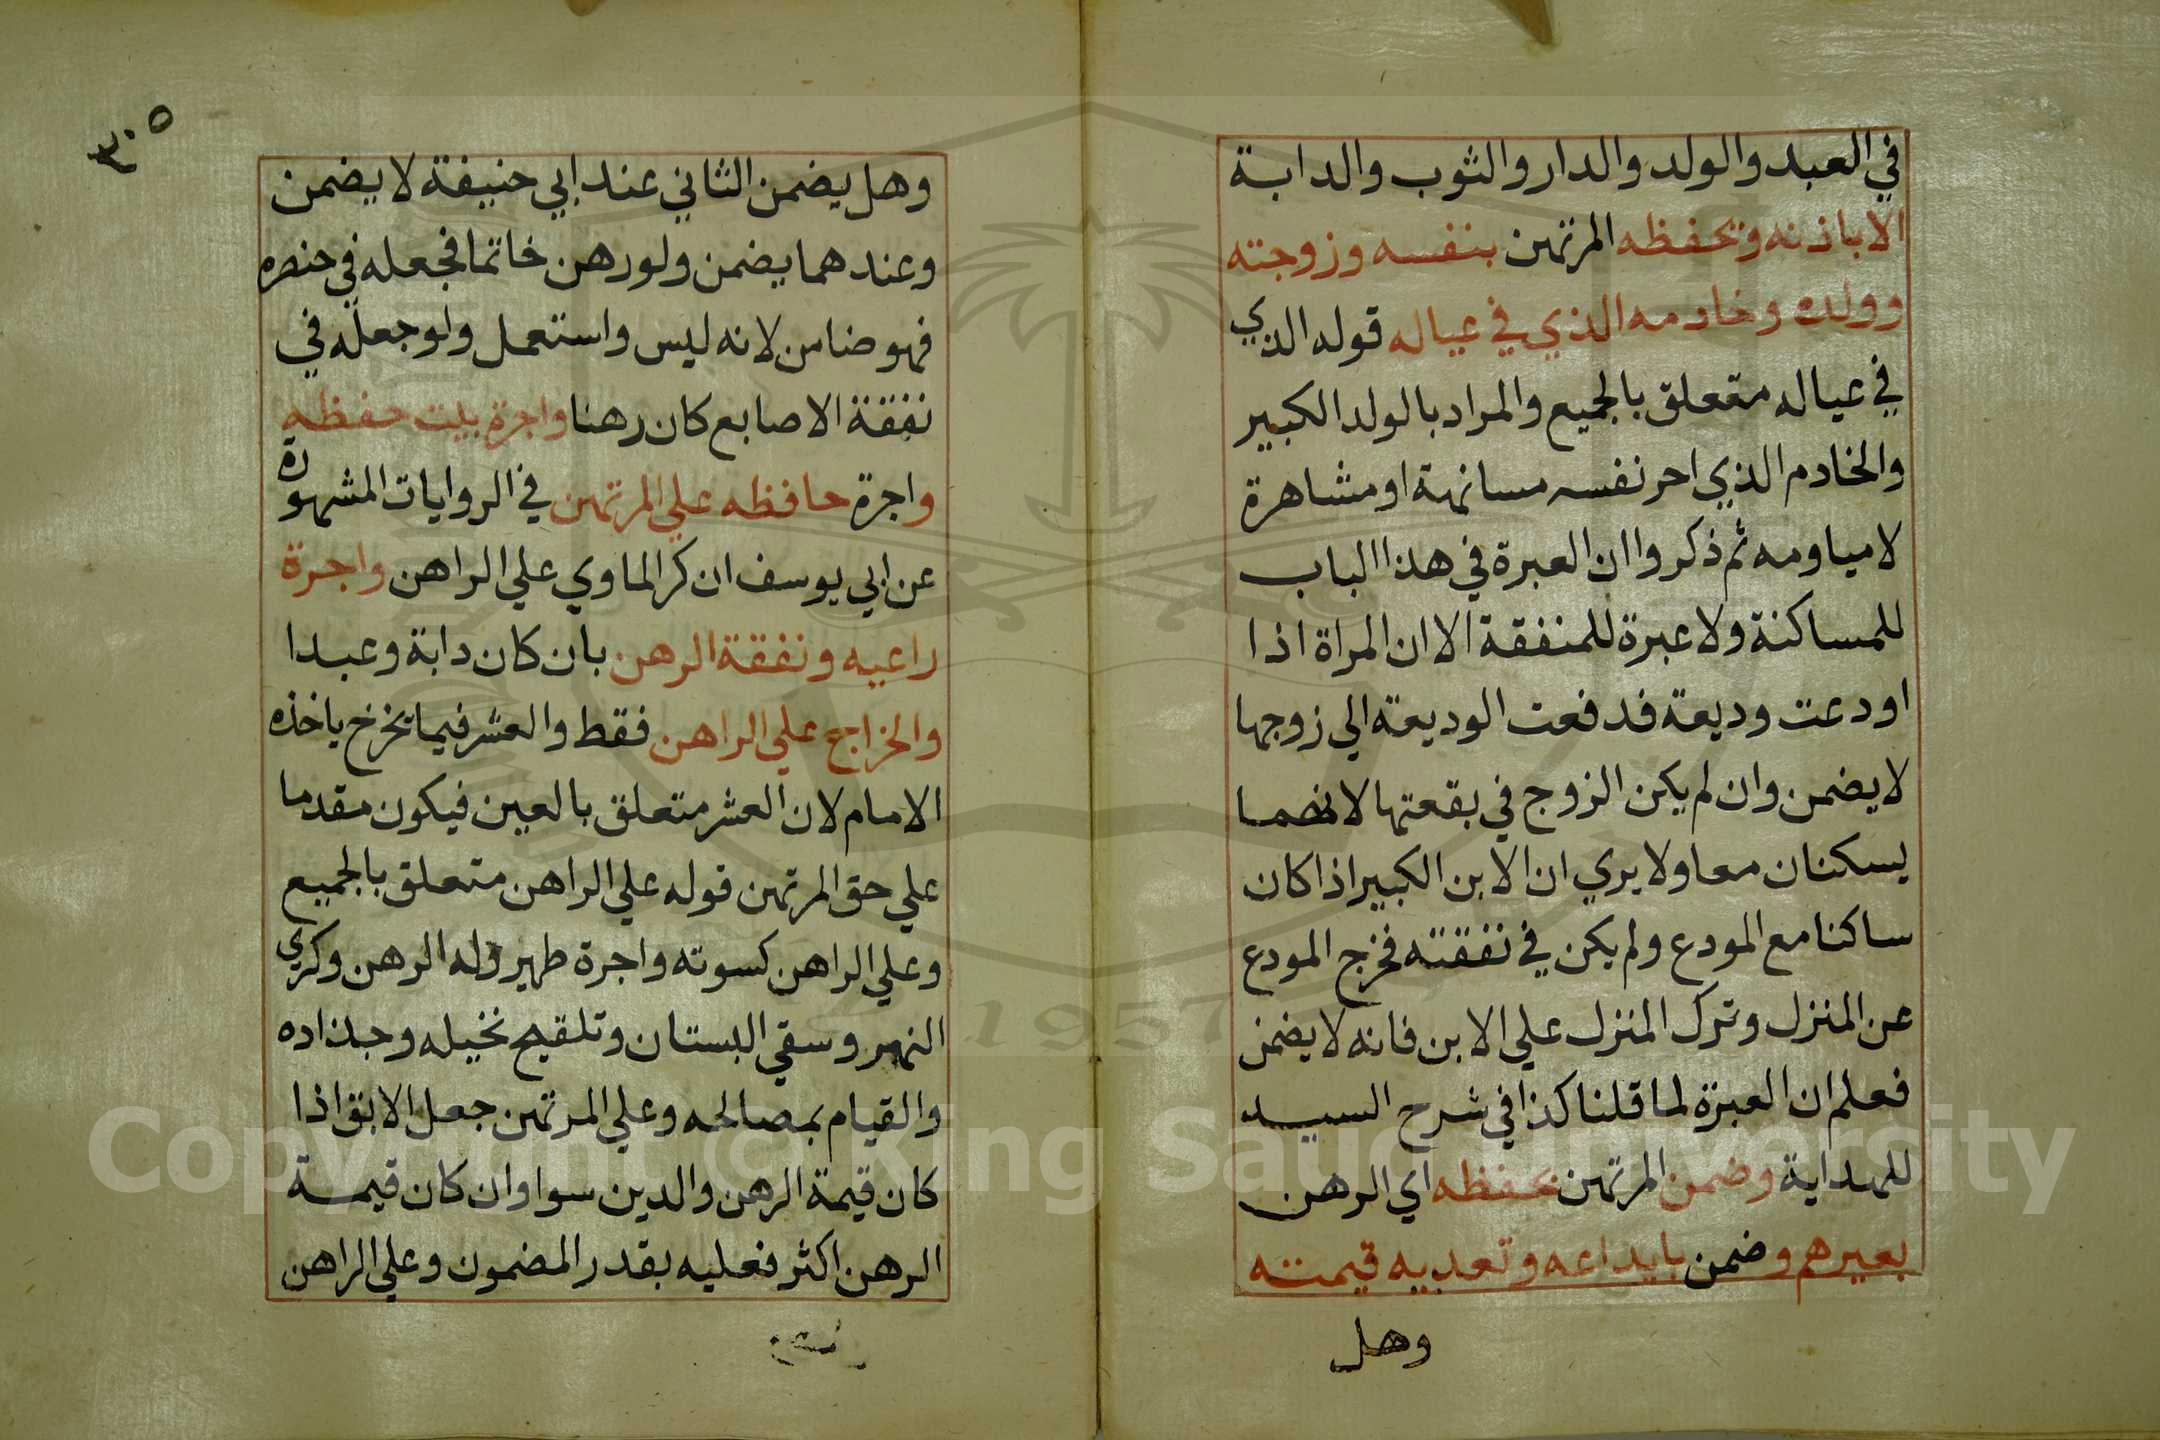 في العبد والولد والدار والثوب والدابة
الا باذنه وتحفظه المرتهن بنفسه وزوجته
وولده وخادمه الذي في عياله قوله الذي
في عياله متعلق بالجميع والمراد بالولد الكبير
والخادم الذي احر نفسه مسانهة او مشاهرة
لا مياومه ثم ذكروا ان العبرة في هذا الباب
للمساكنة ولا عبرة للمنفقة الا ان المراة اذا
اودعت وديعة فدفعت الوديعة الي زوجها
لا يضمن وان لم يكن الزوج في بقعتها لانهما
يسكنان معا ولا يري ان الابن الكبير اذا كان
ساكنا مع المودع ولم يكن في نفقته فخرج المودع
عن المنزل وترك المنزل علي الابن فانه لا يضمن
فعلم ان العبرة لما قلنا كذا في شرح السيد
للهداية وضمن المرتهن بحفظه اي الرهن
بغيرهم وضمن بايداعه وتعديه قيمته
وهل
٣٠٥
وهل يضمن الثاني عند ابي حنيفة لا يضمن
وعندهما يضمن ولو رهن خاتما فجعله في خنصره
فهو ضامن لانه ليس واستعمل ولو جعله في
نفقة الاصابع كان رهنا واجرة بيت حفظه
واجرة حافظه علي المرتهن في الروايات المشهورة
عن ابي يوسف ان كر الماوي علي الراهن واجرة
راعيه ونفقة الرهن بان كان دابة وعبدا
والخراج علي الراهن فقط والعشر فيما تخرج ياخذه
الامام لان العشر متعلق بالعين فيكون مقدما
علي حق المرتهن قوله علي الراهن متعلق بالجميع
وعلي الراهن كسوته واجرة ظهير وله الرهن وكري
النهر وسقي البستان وتلقيح نخيله وجذاده
والقيام بمصالحه وعلي المرتهن جعل الابق اذا
كان قيمة الرهن والدين سوا وان كان قيمة
الرهن اكثر فعليه بقدر المضمون وعلي الراهن
Copyright © King Saud University
1957